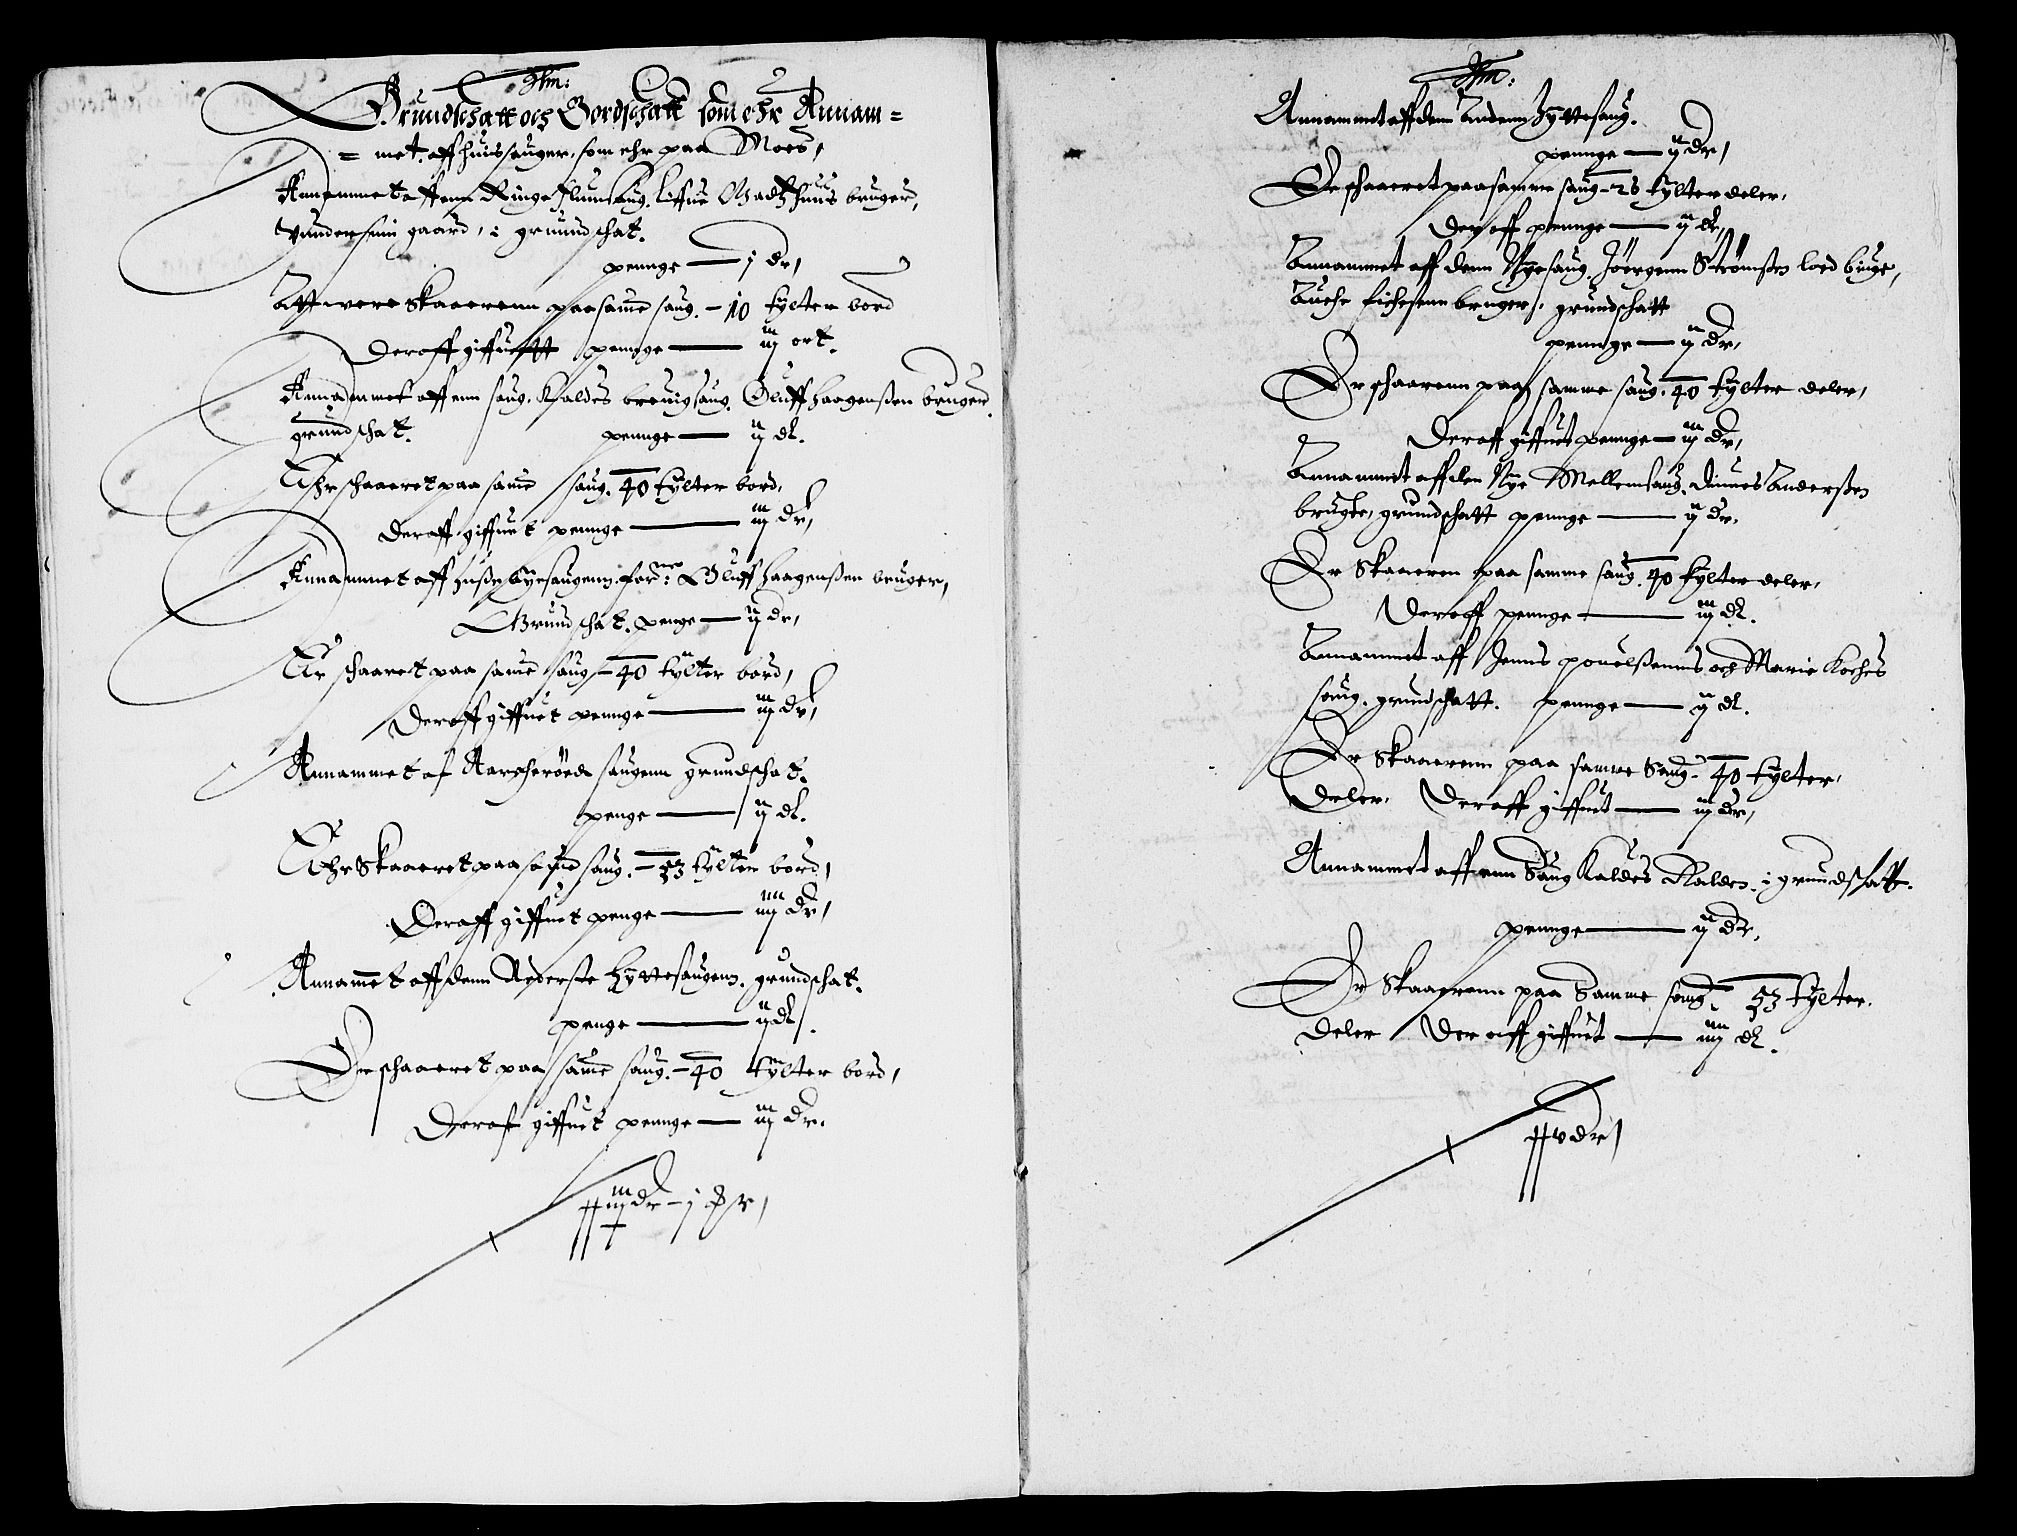 Jtm:
Grundschatt och Bordschatt som ehr Annam=
= met. aff huis sauger, som ehr paa Moes,
Annammet aff enn Ringe flumsaug. Liffue bruger,
vnder sin gaard, i gruundschat.
pennge — j dr,
Att were skaarenn paa same saug. – 10 tylter bord
Deraff giffuett pennge — iij ort.
Annammet aff enn saug. Kaldes breuigsaug. Oluff Haagenßen bruger.
grundschat. pennge — ij dl.
Ehr schaaeret paa same saug. 40 tylter bord,
deraff giffuet pennge — iij dr,
Annammet aff Huße byesaugenn. for:ne Oluff Haagenßen bruger,
Grundschat. penge — ij dr,
Er schaaret paa same saug – 40 tylter bord,
Deraff giffuet pennge — iij dr,
Annammet af Aarheröed saugenn grundschat.
penge — ij dl.
Ehr Skaaeret paa same saug. – 53 tylter bord,
Deraff giffuet penge — iiij dr,
Annamet aff denn Nederste Hyttesaugenn. grundschat.
penge — ij dl.
Er schaaeret paa same saug. – 40 tylter bord,
Deraf giffuet pennge — iij dr.
iij dr – j
Jtm:
Annammet aff denn Andenn Hyttesaug.
pennge — ij dr,
Er schaaeret paa samme saug – 26 tylter deler,
Der aff pennge — ij dr,
Annammet aff denn Nyesaug. Jöergenn Strömßen loed biuge,
Aüche bruger, grundschatt
pennge — ij dr,
Er schaarenn paa samme saug. 40 tylter deler,
Deraff giffuet pennge — iij dr,
Annammet aff den Nye Mellemsaug. Dinnes Anderßen
brugte, grundschatt pennge — ij dr.
Er Skaaeren paa samme saug. 40 tylter deler,
Deraff pennge — iij dl.
Annammet aff Jenns pouelßenns och Marie Koches
saug. grundschatt. pennge — ij dl.
Er Skaarenn paa samme Saug. 40 tylter,
Deler. Deraff giffuet — iij dr,
Annammet aff enn Saug Kaldes Kalden. i grundschatt.
pennge — ij dr,
Er Skaarenn paa Samme saug. 53 tylter.
deler Der aff giffuet — iiij dl.
v dr